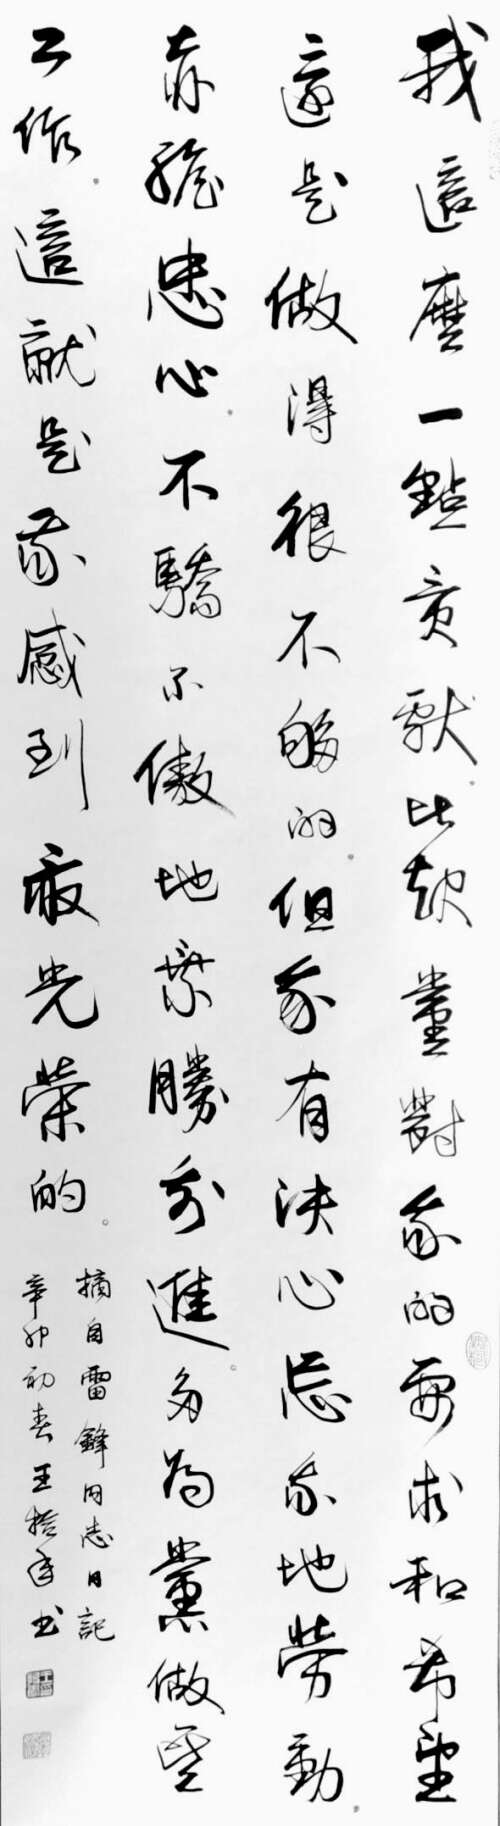 我這麼一點貢獻，比起黨對我的要求和希望
還是做得很不夠的，但我有決心忘我地勞動，
赤膽忠心，不驕不傲地乘勝前進。多為黨做些
工作，這就是我感到最光榮的。
摘自雷鋒同志日記
辛卯初春王書